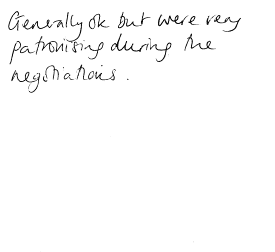 Generally ok but were very
patronising during the
negotiations.